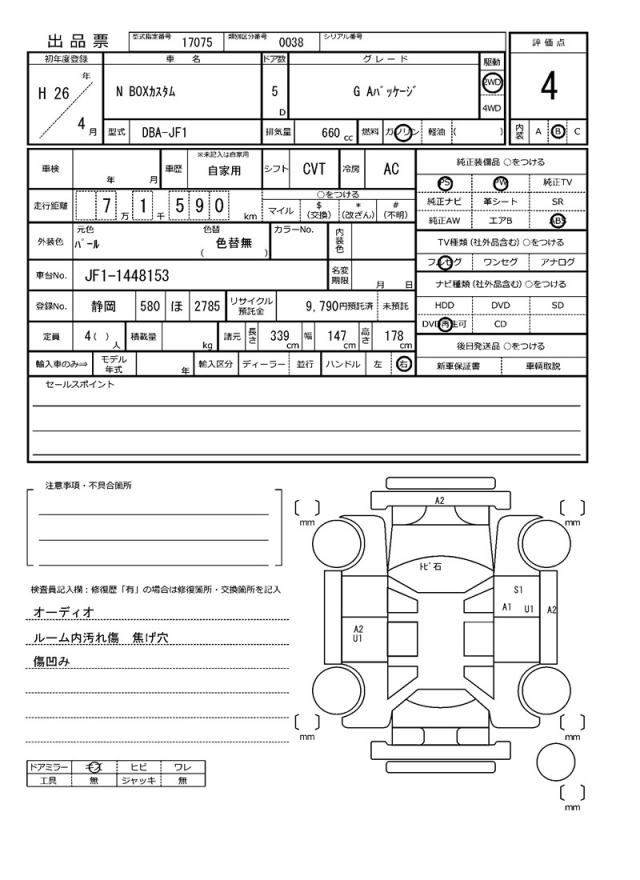 出品票 型式指定番号 17075 類別区分番号 0038 シリアル番号
評価点
初年度登録 車名 ドア数 グレード 駆動
H 26 年 N BOXカスタム 5 D G Aパッケージ 2WD 4
4WD
4 月 型式 DBA-JF1 排気量 660 cc 燃料 ガソリン 軽油 ( ) 内装 A B C
車検 年 月 車歴 ※未記入は自家用 自家用 シフト CVT 冷房 AC 純正装備品 ○をつける
PS PW 純正TV
走行距離 7 万 1 千 5 9 0 km ○をつける
マイル $(交換) *(改ざん) #(不明)
純正ナビ 革シート SR
純正AW エアB ABS
外装色 元色 パール 色替 ( 色替無 ) カラーNo. 内装色
TV種類 (社外品含む) ○をつける
フルセグ ワンセグ アナログ
車台No. JF1-1448153 名変期限 月 日
ナビ種類 (社外品含む) ○をつける
登録No. 静岡 580 ほ 2785 リサイクル預託金 9,790円預託済 未預託
HDD DVD SD
DVD再生可 CD
定員 4( )人 積載量 kg 諸元 長さ 339 cm 幅 147 cm 高さ 178 cm
後日発送品 ○をつける
輸入車のみ⇒ モデル年式 年 輸入区分 ディーラー 並行 ハンドル 左 右 新車保証書 車輌取説
セールスポイント
注意事項・不具合箇所
mm
A2
mm
トビ石
検査員記入欄:修復歴「有」の場合は修復箇所・交換箇所を記入
オーディオ
ルーム内汚れ傷 焦げ穴
傷凹み
S1
A1 U1 A2
A2
U1
mm
mm
ドアミラー キズ ヒビ ワレ
工具 無 ジャッキ 無
mm